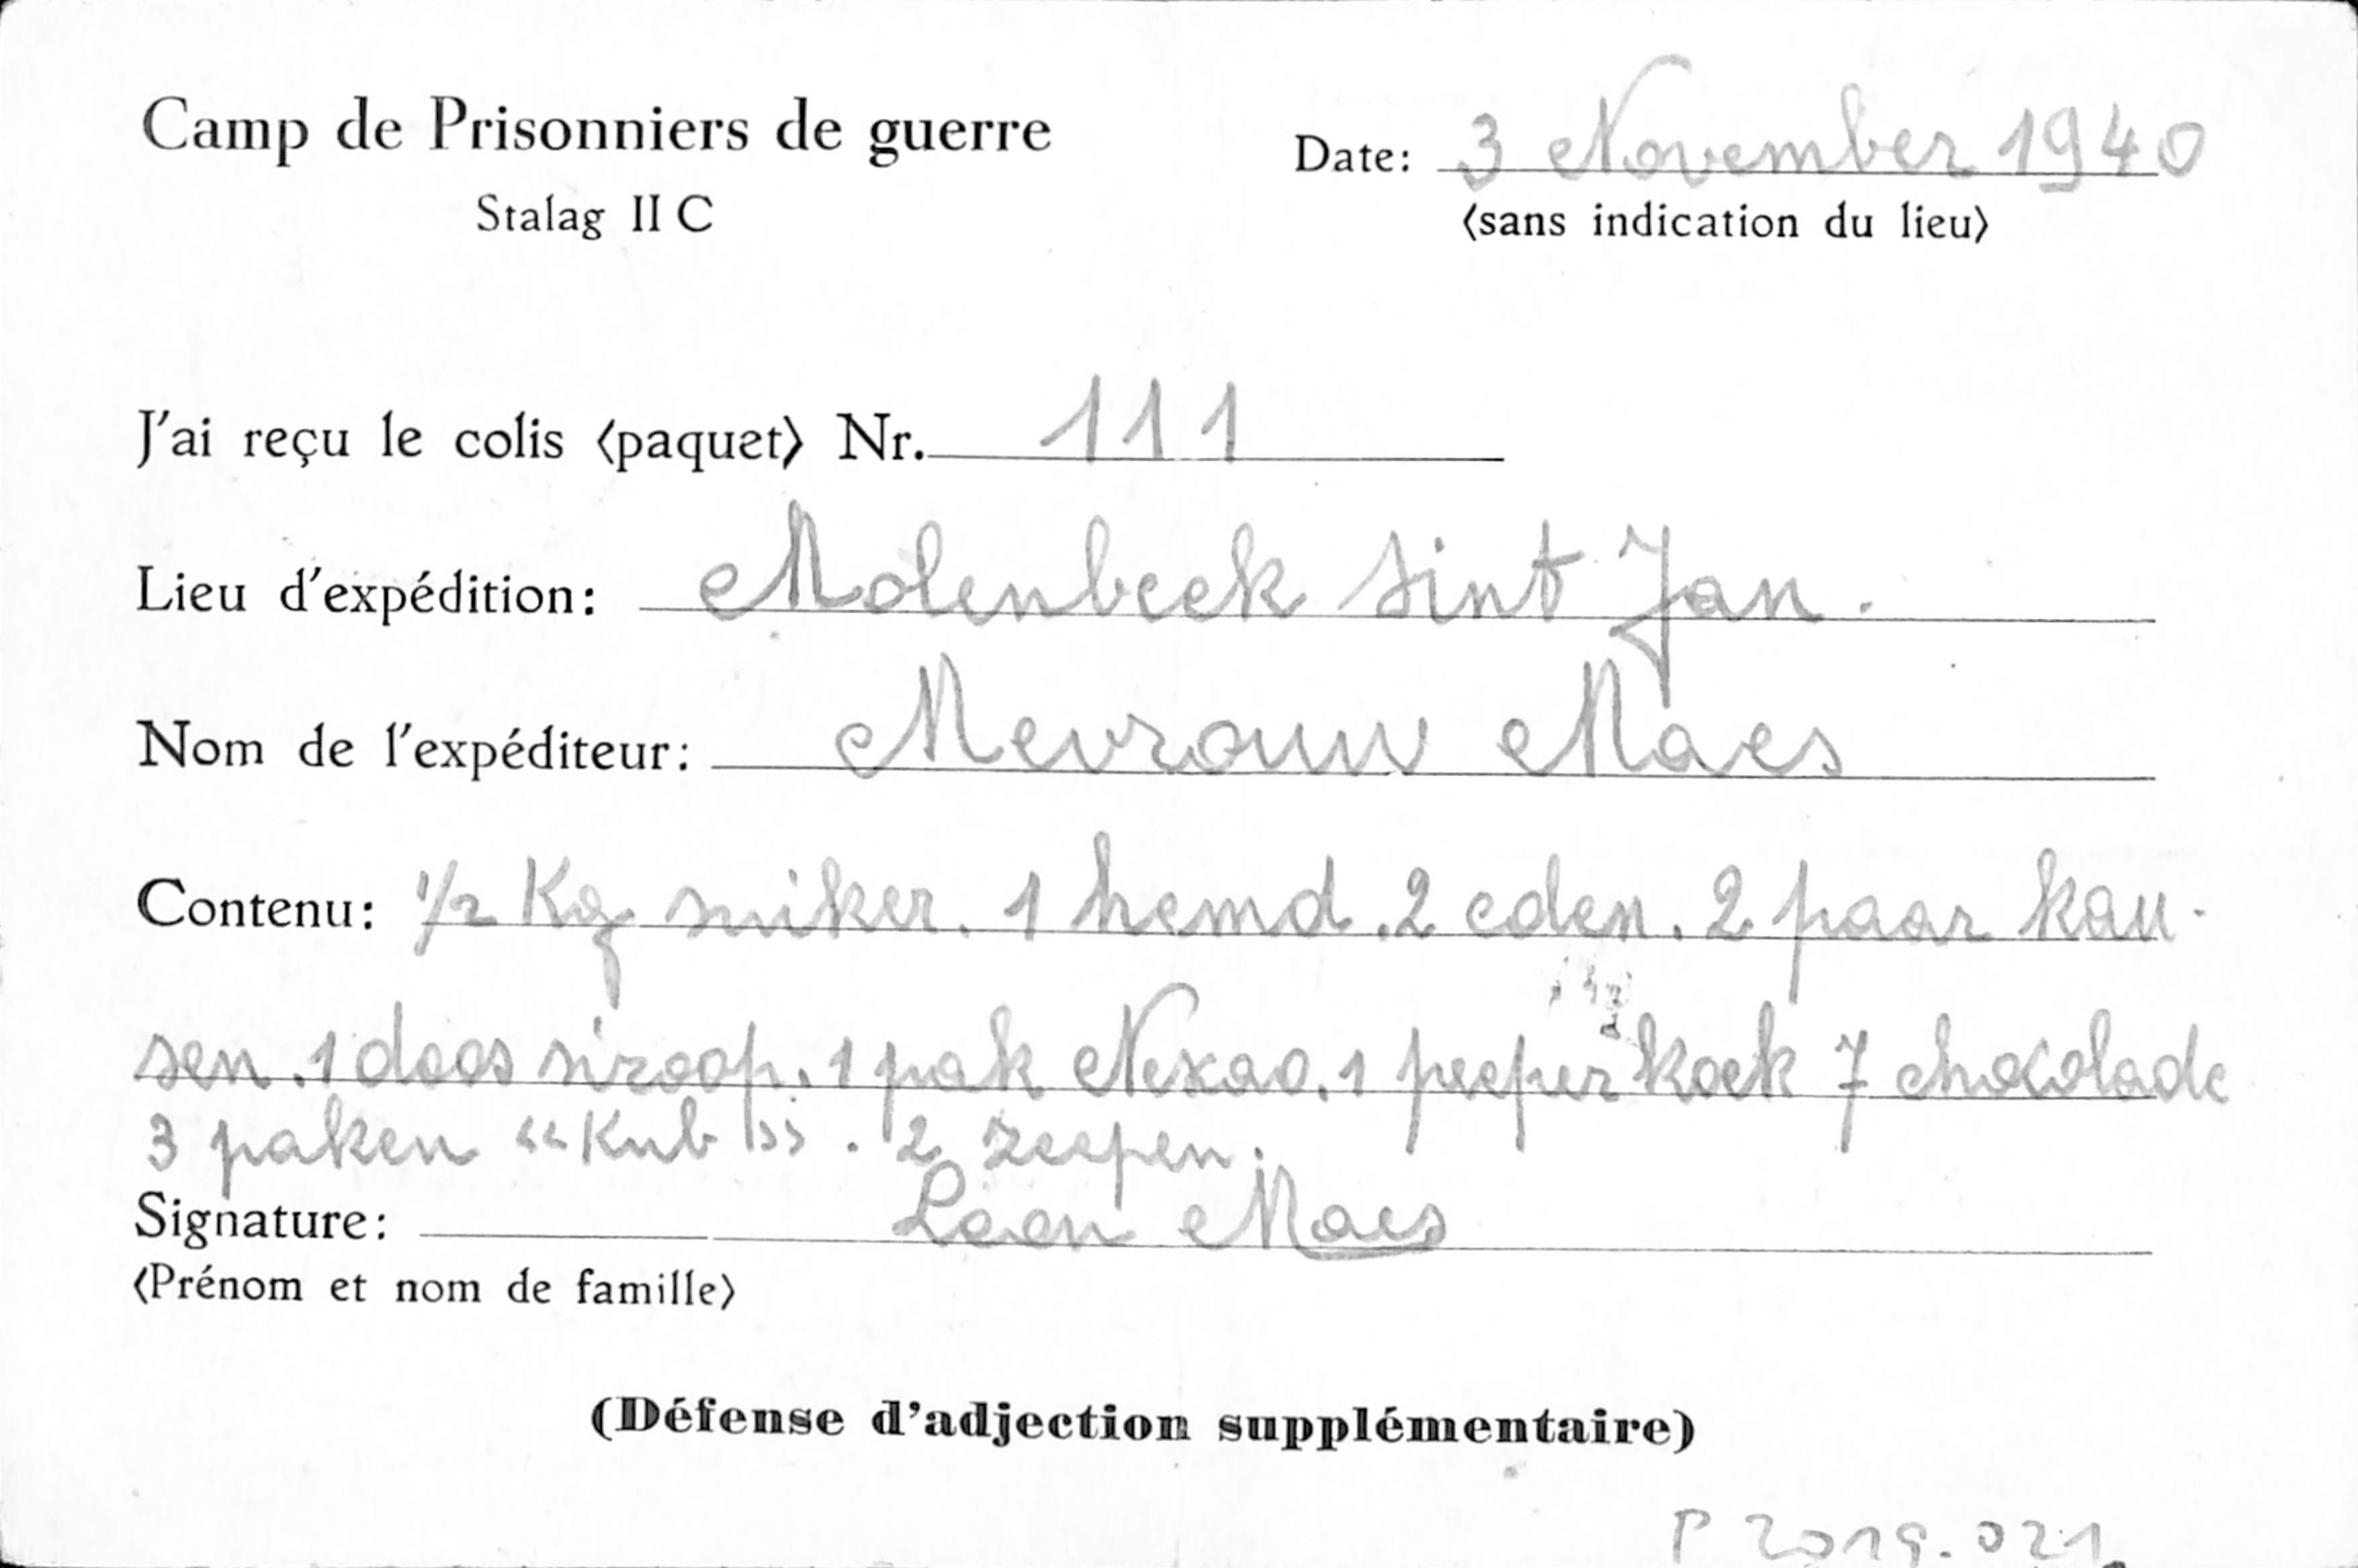 Camp de Prisonniers de guerre
Stalag II C
Date: 3 November 1940
(sans indication du lieu)
J'ai reçu le colis (paquet) Nr. 111
Lieu d'expédition: Molenbeek Sint Jan.
Nom de l'expéditeur: Mevrouw Maes
Contenu: 1/2 Kg suiker. 1 hemd. 2 colen. 2 paar kau-
sen. 1 doos siroop. 1 pak Nexao. 1 peeper koek 7 chocolade
3 paken "Kub". 2 zeepen.
Signature: Leon Maes
(Prénom et nom de famille)
(Défense d'adjection supplémentaire)
P 2019.021